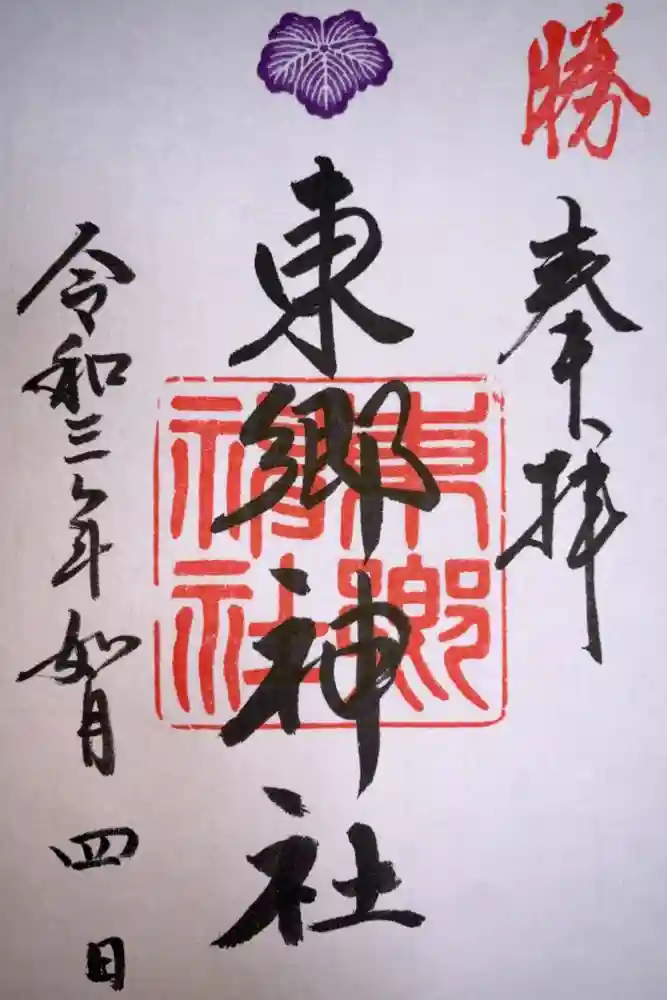 勝
奉拝
東郷神社
東郷神社
令和三年如月四日